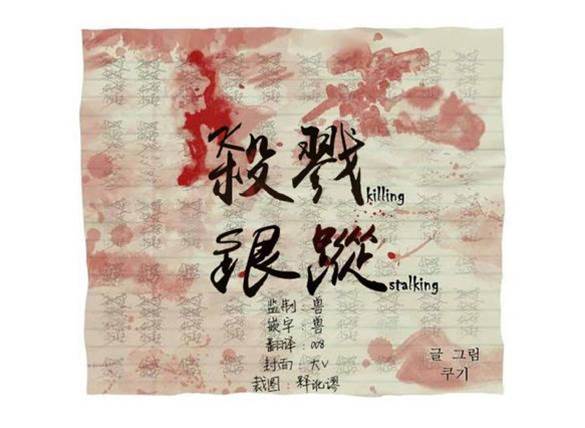 殺戮 killing
跟蹤 stalking
监制：兽
嵌字：兽
翻译：008
封面：大V
裁图：
글 그림
쿠기